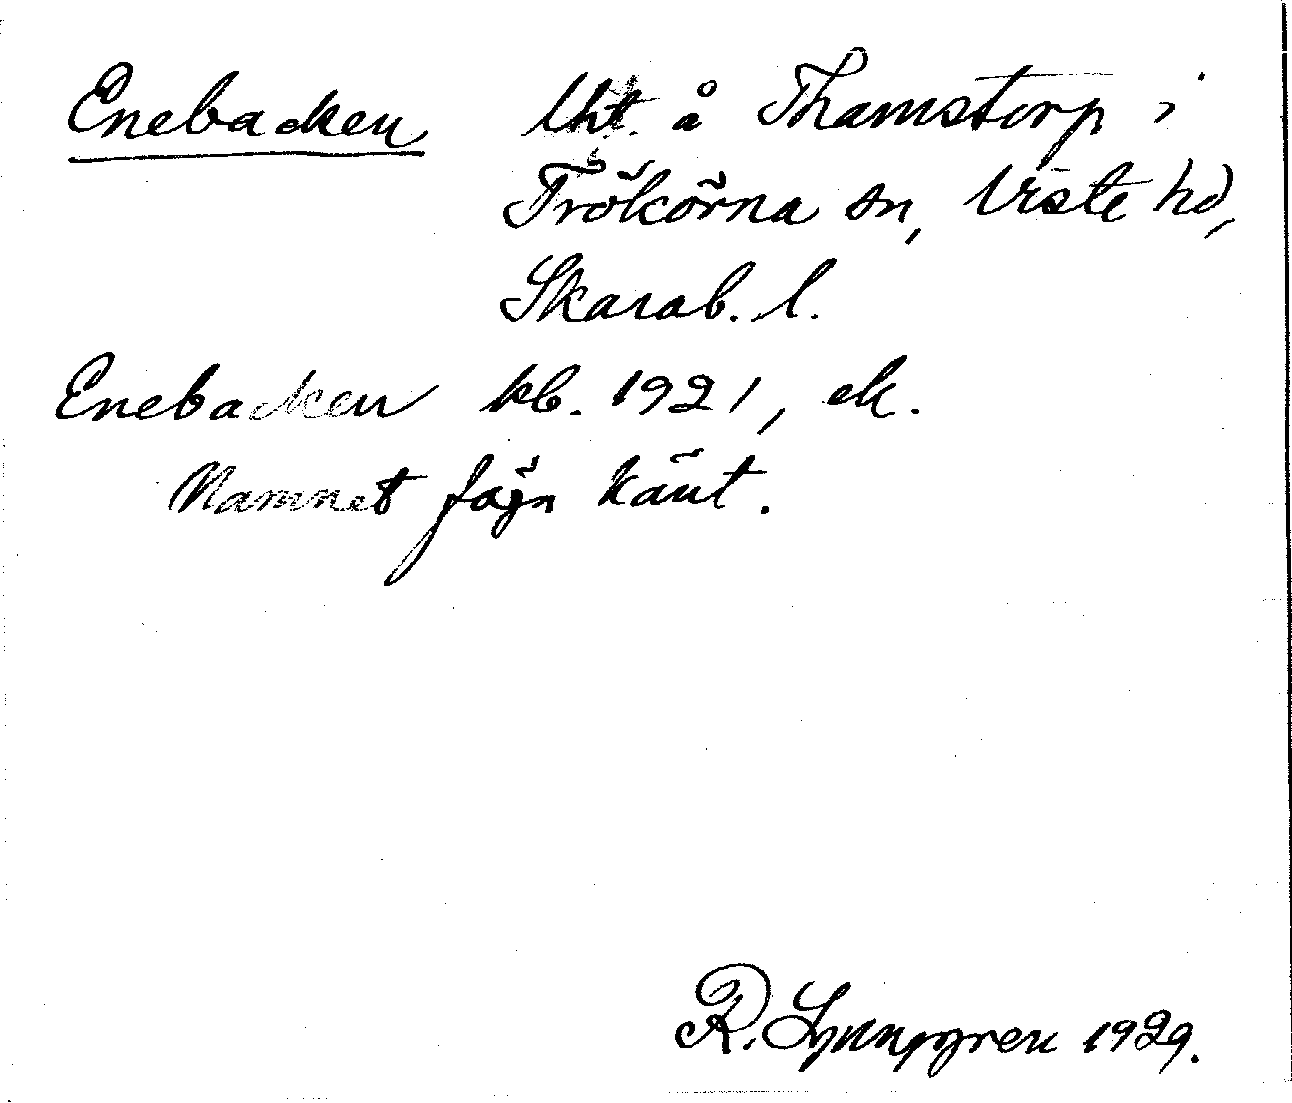 Enebacken lht. å Thamstorp i
Trökörna sn, Viste hd,
Skarab. l.
Enebacken kb. 1921, ek.
Namnet föga känt.
R. Ljunggren 1929.